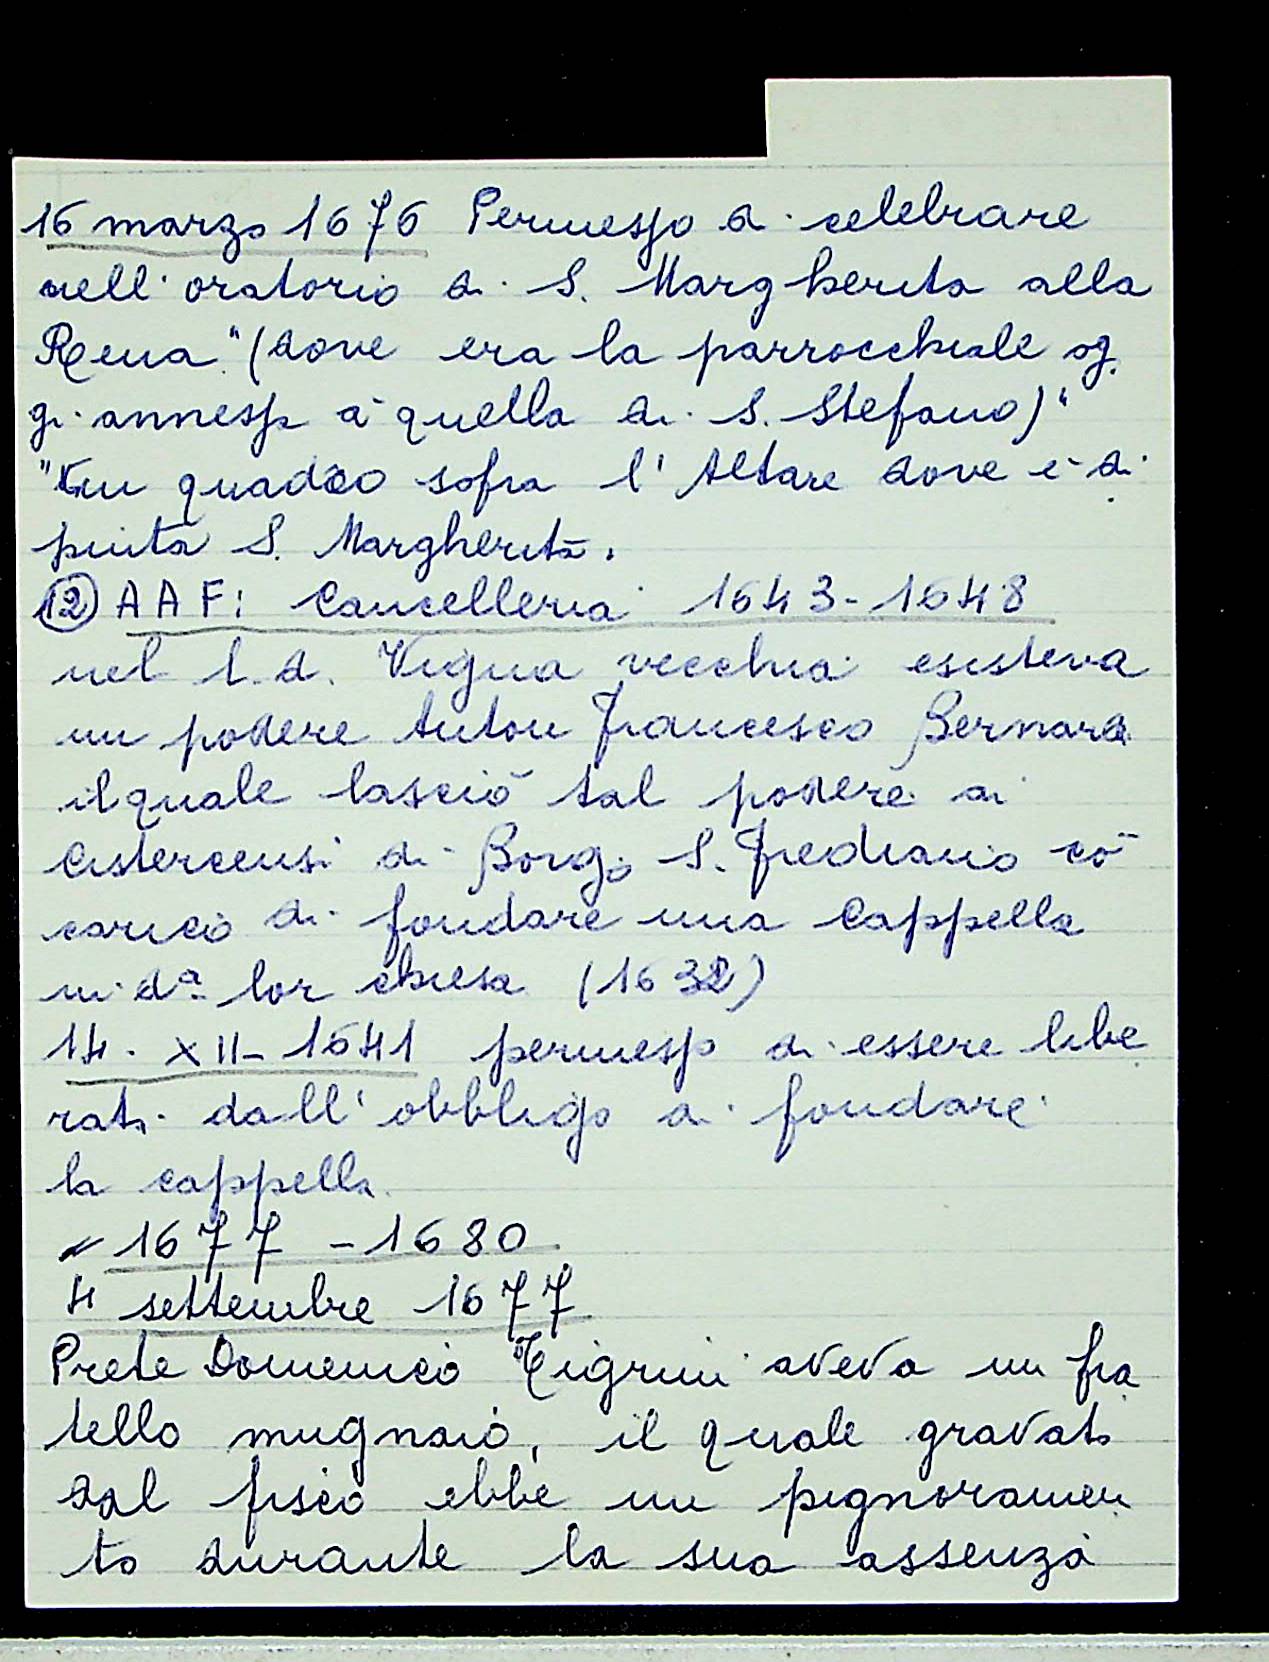 16 marzo 1676 Permesso di celebrare
nell'oratorio di S. Margherita alla
Rena "(dove era la parrocchiale og
gi annessa a quella di S. Stefano)"
"Un quadro sopra l'Altare dove è di
pinta S. Margherita.
(12) AAF: Cancelleria 1643-1648
nel l.d. Vigna vecchia esisteva
un podere Anton Francesco Bernardi
il quale lasciò tal podere ai
Cistercensi di Borgo S. Frediano cō
carico di fondare una Cappella
in da lor chiesa (1632)
14-XII-1641 permesso di essere libe
rati dall'obbligo di fondare
la cappella
1677-1680
4 settembre 1677
Prete Domenico Tigrini aveva un fra
tello mugnaio, il quale gravato
dal fisco ebbe un pignoramen
to durante la sua assenza